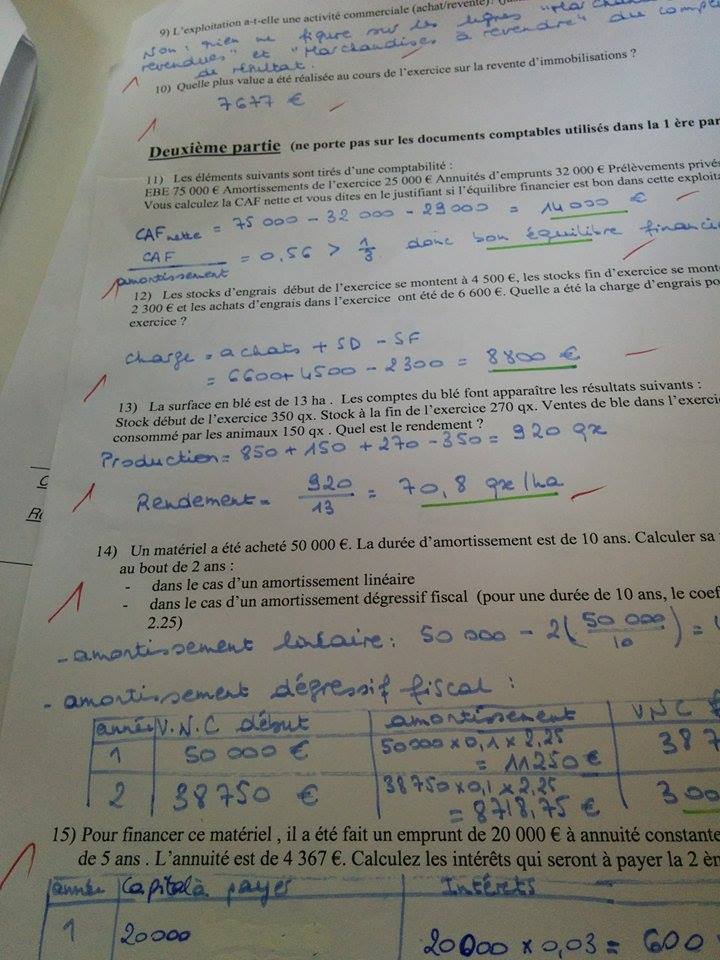 9) L'exploitation a-t-elle une activité commerciale (achat/revente)?
Non : rien ne figure sur les lignes "Marchandises
revendues" et "Marchandises à revendre" du compte
de résultat.
10) Quelle plus value a été réalisée au cours de l'exercice sur la revente d'immobilisations ?
7677 €
Deuxième partie (ne porte pas sur les documents comptables utilisés dans la 1 ère par
11) Les éléments suivants sont tirés d'une comptabilité :
EBE 75 000 € Amortissements de l'exercice 25 000 € Annuités d'emprunts 32 000 € Prélèvements privés
Vous calculez la CAF nette et vous dites en le justifiant si l'équilibre financier est bon dans cette exploita
CAF nette = 75 000 - 32 000 - 29 000 = 14 000 €
CAF / amortissement = 0,56 > 1/3 donc bon équilibre financie
12) Les stocks d'engrais début de l'exercice se montent à 4 500 €, les stocks fin d'exercice se mont
2 300 € et les achats d'engrais dans l'exercice ont été de 6 600 €. Quelle a été la charge d'engrais po
exercice ?
charge = achats + SD - SF
= 6600 + 4500 - 2300 = 8800 €
13) La surface en blé est de 13 ha . Les comptes du blé font apparaître les résultats suivants :
Stock début de l'exercice 350 qx. Stock à la fin de l'exercice 270 qx. Ventes de ble dans l'exerci
consommé par les animaux 150 qx . Quel est le rendement ?
Production = 850 + 150 + 270 - 350 = 920 qx
Rendement = 920/13 = 70,8 qx/ha
14) Un matériel a été acheté 50 000 €. La durée d'amortissement est de 10 ans. Calculer sa
au bout de 2 ans :
- dans le cas d'un amortissement linéaire
- dans le cas d'un amortissement dégressif fiscal (pour une durée de 10 ans, le coef
2.25)
- amortissement linéaire : 50 000 - 2(50 000/10) =
- amortissement dégressif fiscal :
année V.N.C début amortissement VNC f
1 50 000 € 50000 x 0,1 x 2,25 = 11250 € 387
2 38 750 € 38750 x 0,1 x 2,25 = 8718,75 € 300
15) Pour financer ce matériel , il a été fait un emprunt de 20 000 € à annuité constante
de 5 ans . L'annuité est de 4 367 €. Calculez les intérêts qui seront à payer la 2 èm
année Capital à payer Intérêts
1 20000 20000 x 0,03 = 600